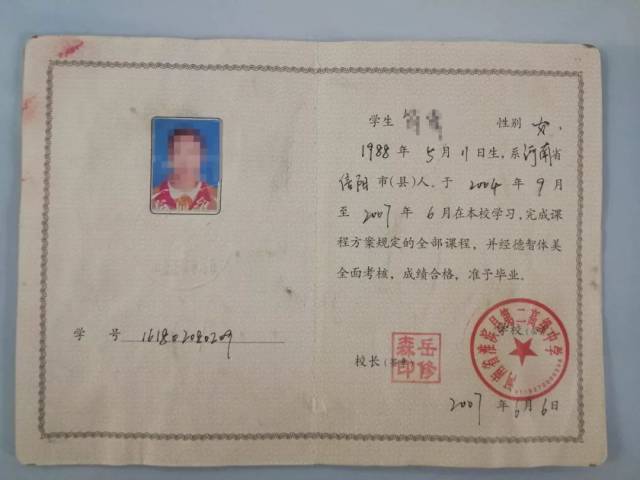 学生 性别 女
1988 年 5 月 11 日生,系河南省
信阳市(县)人,于 2004 年 9 月
至 2007 年 6 月在本校学习,完成课
程方案规定的全部课程,并经德智体美
全面考核,成绩合格,准予毕业。
学 号 161802020209
学校
校长
岳修森印
河南省淮滨县第二高级中学
2007 年 6 月 6 日